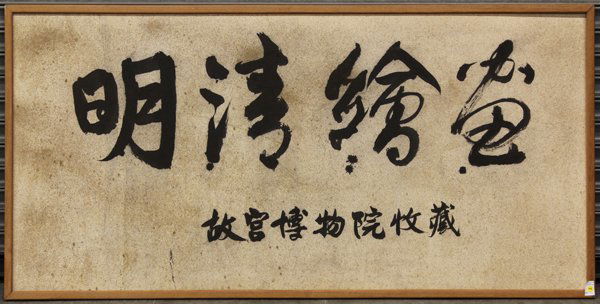 明清繪画
故宫博物院收藏